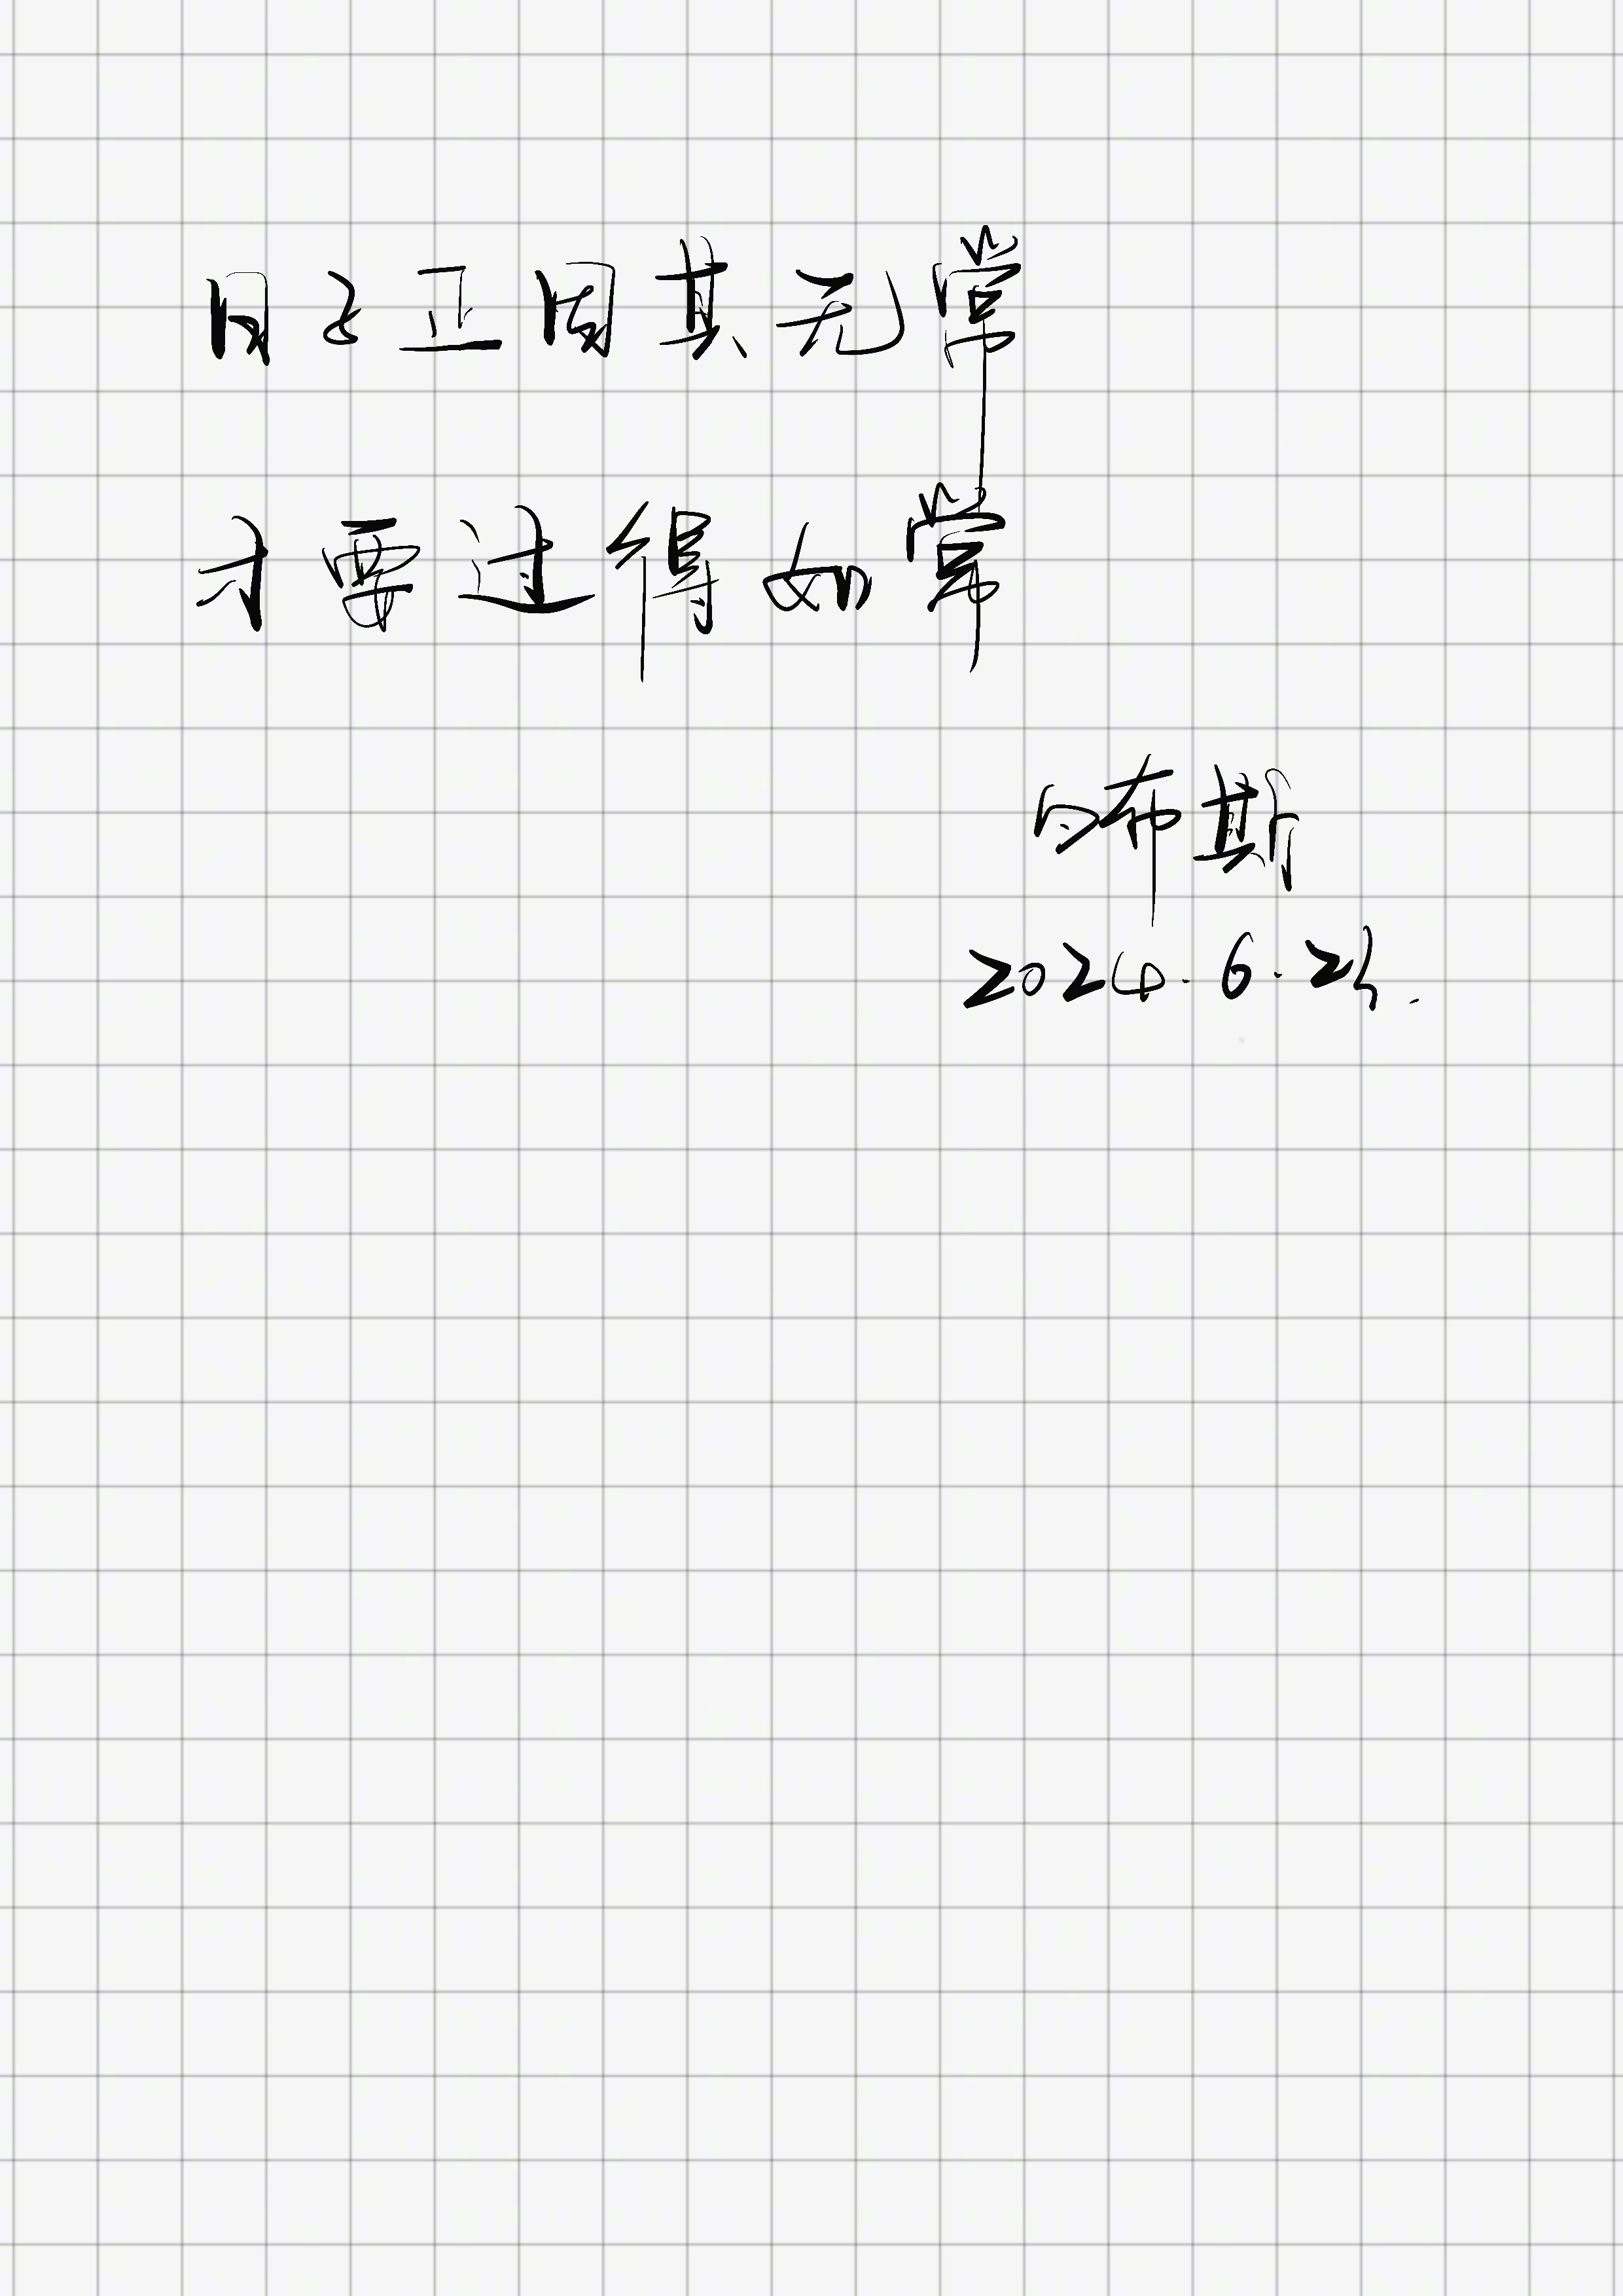 日子正因其无常
才要过得如常
布斯
2024.6.2